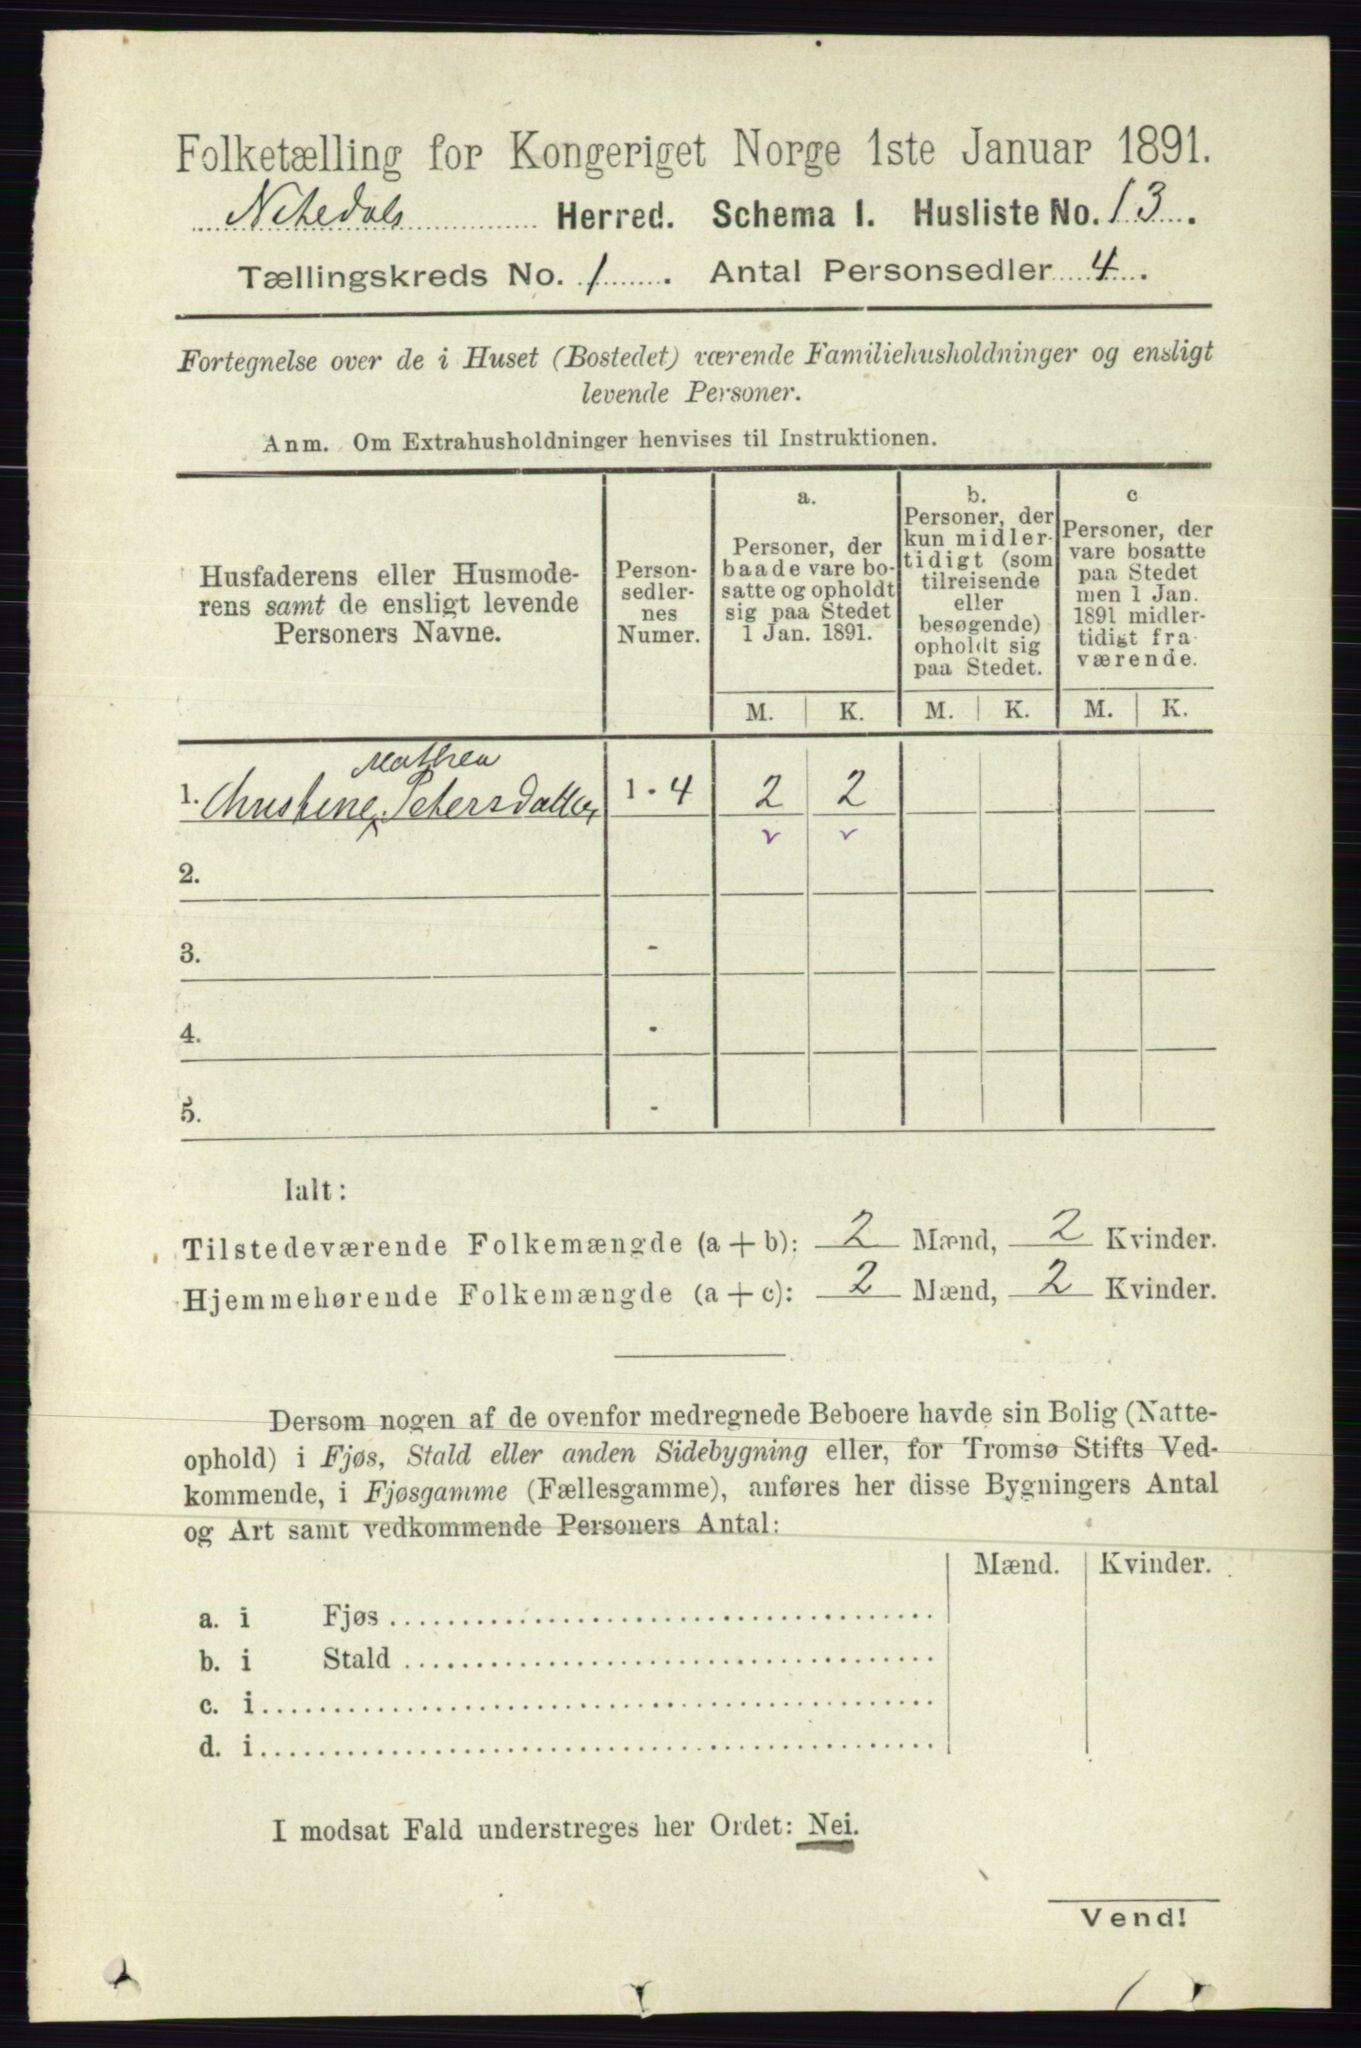 Folketælling for Kongeriget Norge 1ste Januar 1891.
Nitedals Herred. Schema 1. Husliste No. 13.
Tællingskreds No. 1. Antal Personsedler 4.
Fortegnelse over de i Huset (Bostedet) værende Familiehusholdninger og ensligt
levende Personer.
Anm. Om Extrahusholdninger henvises til Instruktionen.
Husfaderens eller Husmode-
rens samt de ensligt levende
Personers Navne.
Person-
sedler-
nes
Numer.
a.
Personer, der
baade vare bo-
satte og opholdt
sig paa Stedet
1 Jan. 1891.
b.
Personer, der
kun midler-
tidigt (som
tilreisende
eller
besøgende)
opholdt sig
paa Stedet.
c
Personer, der
vare bosatte
paa Stedet
men 1 Jan.
1891 midler-
tidigt fra-
værende.
M. K. M. K. M. K.
Mathea
1. Christine Petersdatter 1 - 4 2 2
2.
3. -
4. -
5. -
Ialt:
Tilstedeværende Folkemængde (a + b): 2 Mænd, 2 Kvinder.
Hjemmehørende Folkemængde (a + c): 2 Mænd, 2 Kvinder.
Dersom nogen af de ovenfor medregnede Beboere havde sin Bolig (Natte-
ophold) i Fjøs, Stald eller anden Sidebygning eller, for Tromsø Stifts Ved-
kommende, i Fjøsgamme (Fællesgamme), anføres her disse Bygningers Antal
og Art samt vedkommende Personers Antal:
Mænd. Kvinder.
a. i Fjøs
b. i Stald
c. i
d. i
I modsat Fald understreges her Ordet: Nei.
Vend!